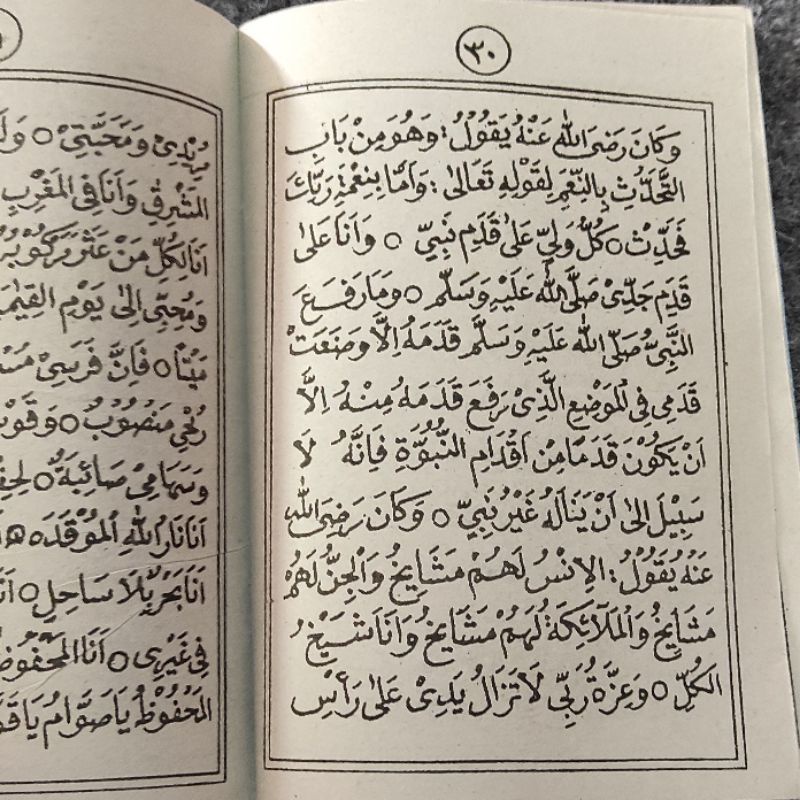 ٣٠
وَكَانَ رَضِىَ اللّٰهُ عَنْهُ يَقُوْلُ: وَهُوَ مِنْ بَابِ
التَّحَدُّثِ بِالنِّعَمِ لِقَوْلِهِ تَعَالٰى: وَاَمَّا بِنِعْمَةِ رَبِّكَ
فَحَدِّثْ ○ كُلُّ وَلِيٍّ عَلٰى قَدَمِ نَبِيٍّ ○ وَاَنَا عَلٰى
قَدَمِ جَدِّىْ صَلَّى اللّٰهُ عَلَيْهِ وَسَلَّمَ ○ وَمَا رَفَعَ
النَّبِىُّ صَلَّى اللّٰهُ عَلَيْهِ وَسَلَّمَ قَدَمَهُ اِلَّا وَضَعْتُ
قَدَمِى فِى الْمَوْضِعِ الَّذِىْ رَفَعَ قَدَمَهُ مِنْهُ اِلَّا
اَنْ يَكُوْنَ قَدَمًا مِنْ اَقْدَامِ النُّبُوَّةِ فَاِنَّهُ لَا
سَبِيْلَ اِلٰى اَنْ يَنَالَهُ غَيْرُ نَبِيٍّ ○ وَكَانَ رَضِىَ اللّٰهُ
عَنْهُ يَقُوْلُ: الْاِنْسُ لَهُمْ مَشَايِخُ وَالْجِنُّ لَهُمْ
مَشَايِخُ وَالْمَلَآئِكَةُ لَهُمْ مَشَايِخُ وَاَنَا شَيْخُ
الْكُلِّ ○ وَعِزَّةِ رَبِّى لَا تَزَالُ يَدِىْ عَلٰى رَأْسِ
مُرِيْدِىْ وَمَحَبَّتِىْ ○
الْمَشْرِقِ وَاَنَا فِى الْمَغْرِبِ
اَنَا لِكُلِّ مَنْ عَثَرَ مَرْكُوْبُهُ
وَمُحِبِّى اِلٰى يَوْمِ
○ فَاِنَّ فَرَسِىْ
رُمْحِى مَنْصُوْبٌ ○
وَسِهَامِىْ صَائِبَةٌ ○
اَنَا نَارُ اللّٰهِ الْمُوْقَدَةُ ○
اَنَا بَحْرٌ بِلَا سَاحِلٍ ○
فِى غَيْرِى ○ اَنَا
الْمَحْفُوْظُ يَا صَوَّامُ يَا